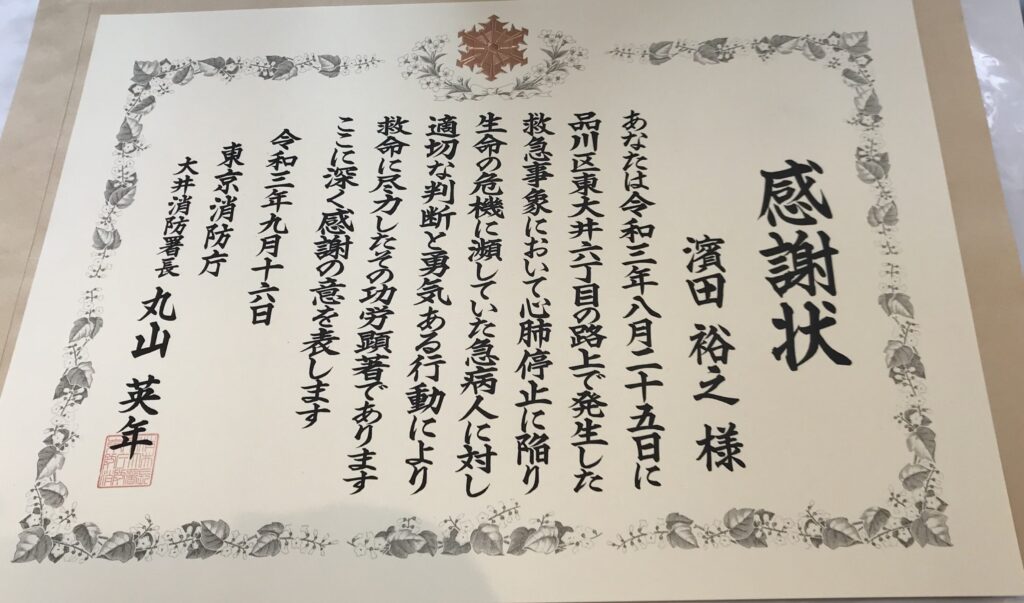 感謝状
濱田 裕之 様
あなたは令和三年八月二十五日に
品川区東大井六丁目の路上で発生した
救急事象において心肺停止に陥り
生命の危機に瀕していた急病人に対し
適切な判断と勇気ある行動により
救命に尽力したその功労顕著であります
ここに深く感謝の意を表します
令和三年九月十六日
東京消防庁
大井消防署長 丸山 英年